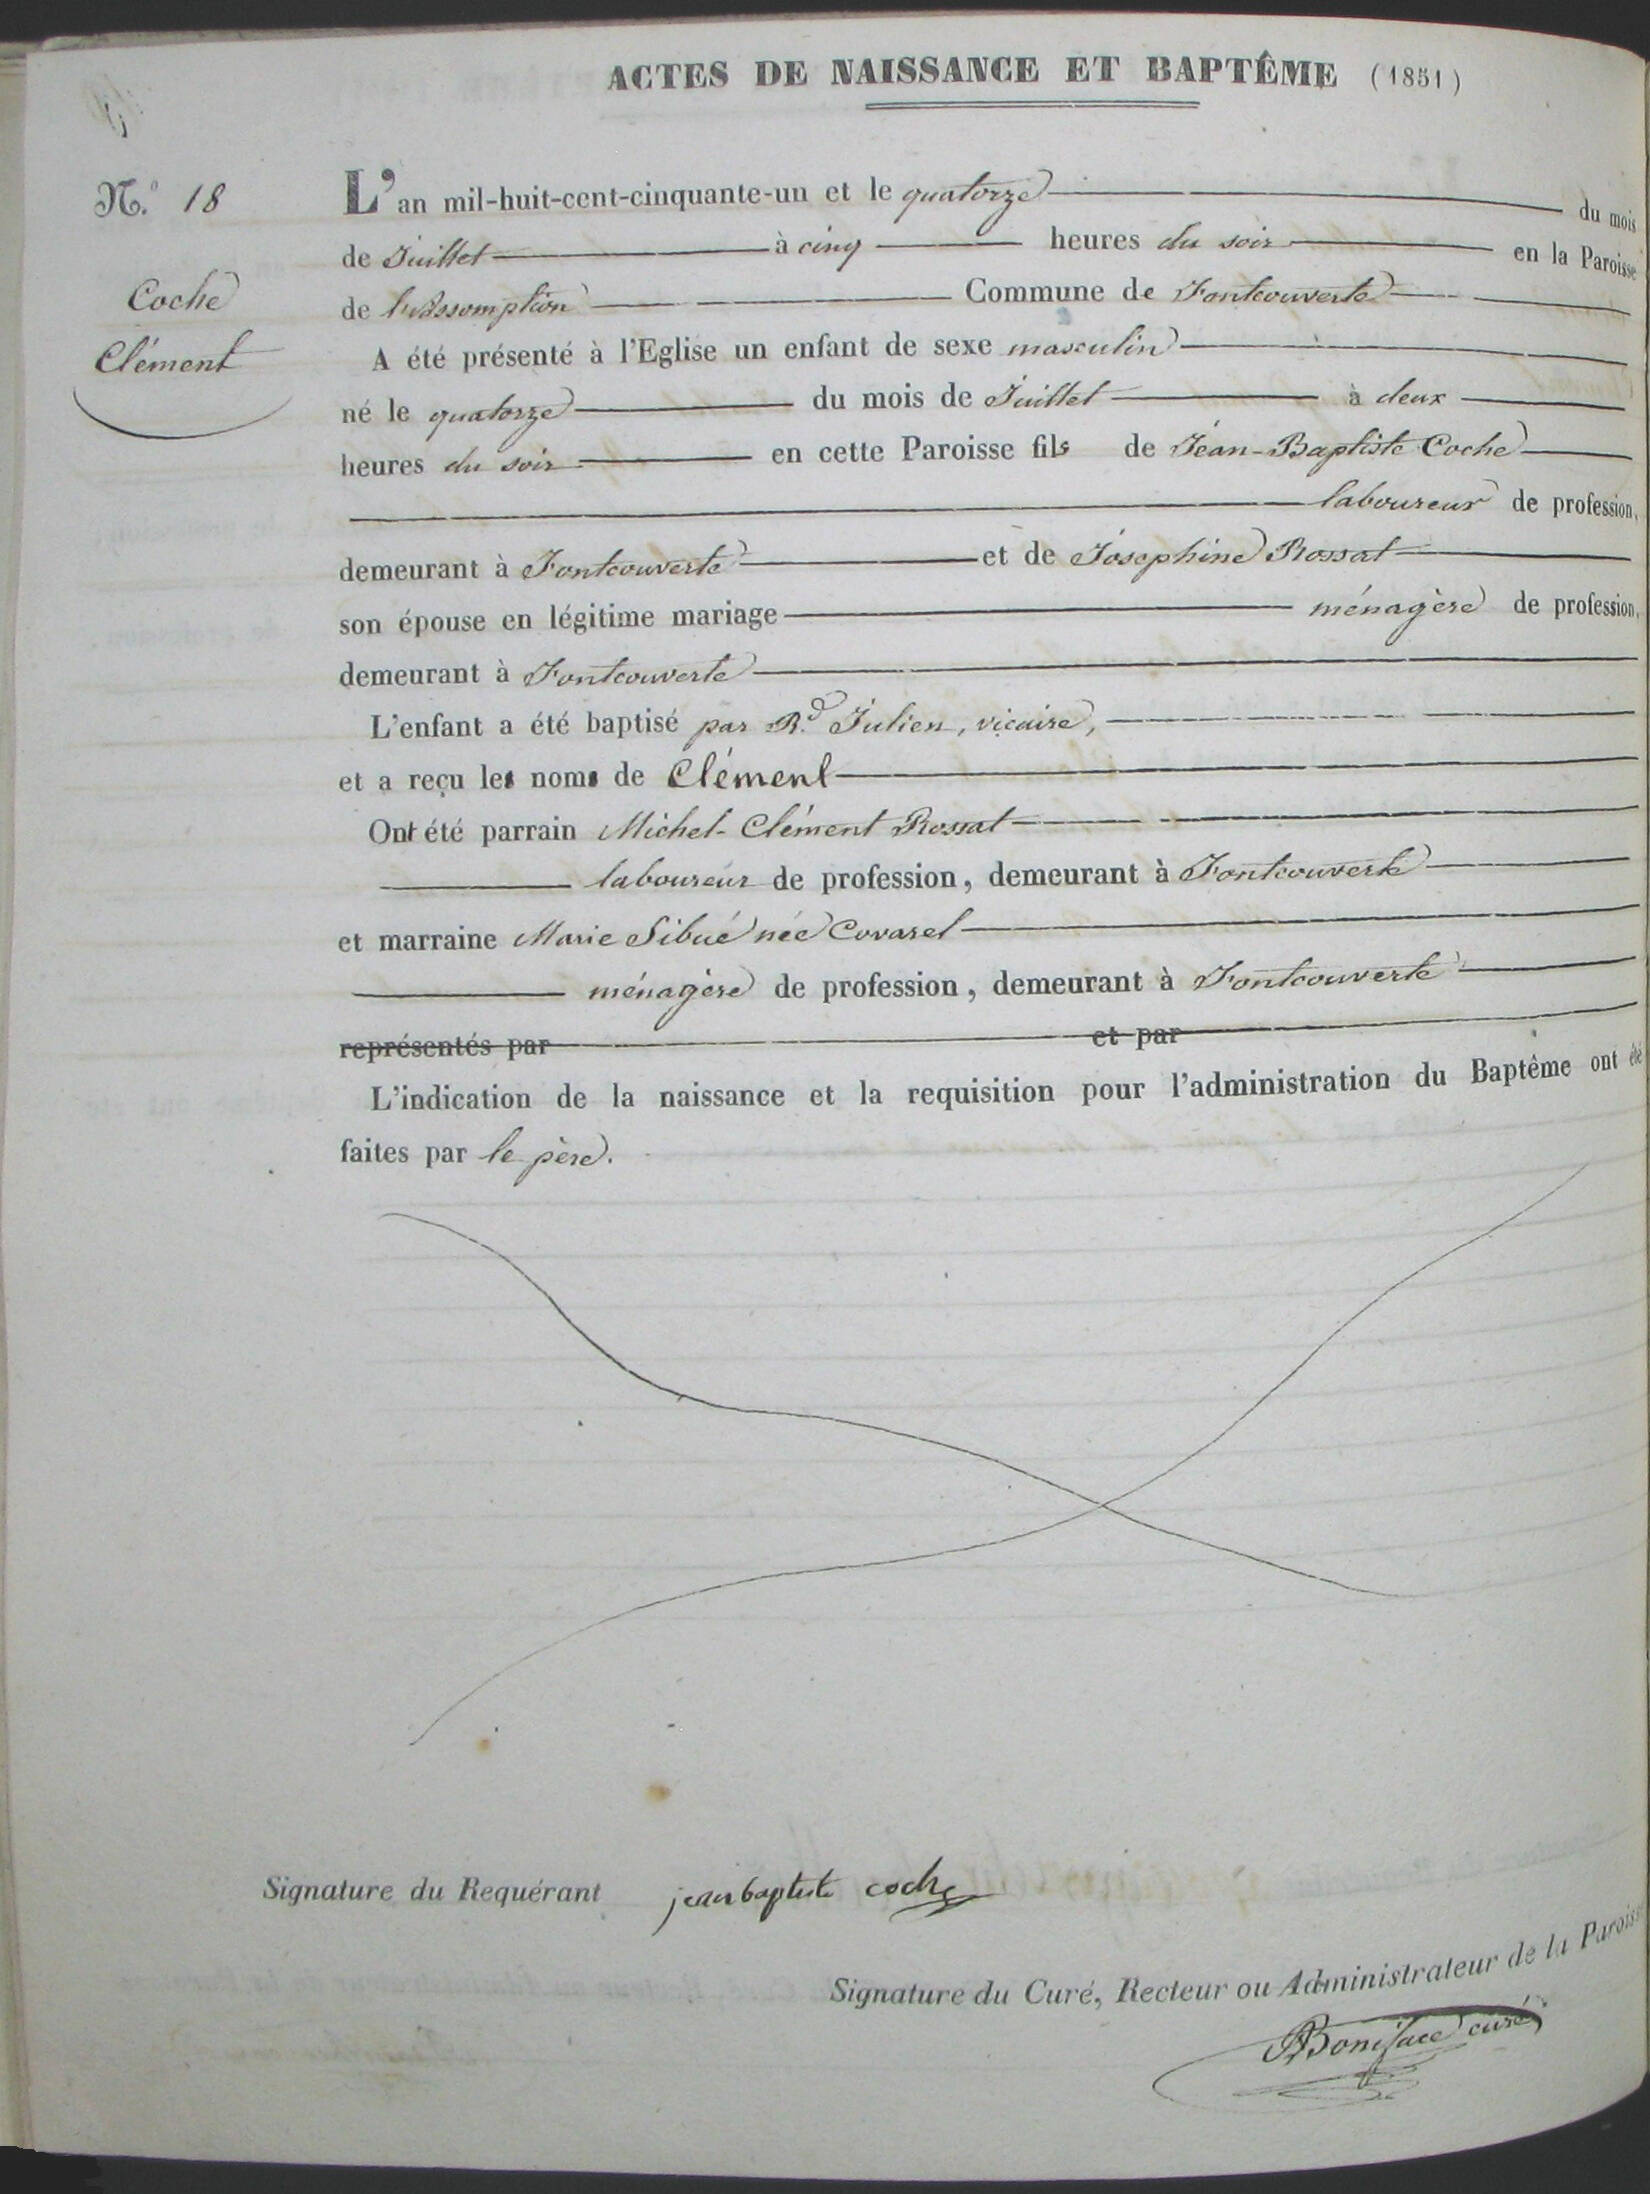 ACTES DE NAISSANCE ET BAPTÊME (1851)
N.º 18
Coche
Clément
L'an mil-huit-cent-cinquante-un et le quatorze du mois
de Juillet à cinq heures du soir en la Paroisse
de l'Assomption Commune de Fontcouverte
A été présenté à l'Eglise un enfant de sexe masculin
né le quatorze du mois de Juillet à deux
heures du soir en cette Paroisse fils de Jean-Baptiste Coche
laboureur de profession,
demeurant à Fontcouverte et de Josephine Rossat
son épouse en légitime mariage ménagère de profession,
demeurant à Fontcouverte
L'enfant a été baptisé par R.d Julien, vicaire,
et a reçu les noms de Clément
Ont été parrain Michel-Clément Rossat
laboureur de profession, demeurant à Fontcouverte
et marraine Marie Sibué née Covarel
ménagère de profession, demeurant à Fontcouverte
représentés par et par
L'indication de la naissance et la requisition pour l'administration du Baptême ont été
faites par le père.
Signature du Requérant jean baptiste coche
Signature du Curé, Recteur ou Administrateur de la Paroisse
Boniface curé